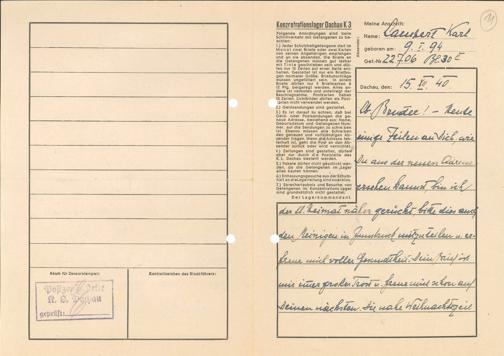 Konzentrationslager Dachau K 3
Folgende Anordnungen sind beim
Schriftverkehr mit Gefangenen zu be-
achten:
1.) Jeder Schutzhaftgefangene darf im
Monat zwei Briefe oder zwei Karten
von seinen Angehörigen empfangen
und an sie absenden. Die Briefe an
die Gefangenen müssen gut lesbar
mit Tinte geschrieben sein und dürfen
nur 15 Zeilen auf einer Seite ent-
halten. Gestattet ist nur ein Briefbo-
gen normaler Größe. Briefumschläge
müssen ungefüttert sein. In einem
Briefe dürfen nur 5 Briefmarken à
12 Pfg. beigelegt werden. Alles an-
dere ist verboten und unterliegt der
Beschlagnahme. Postkarten haben
10 Zeilen. Lichtbilder dürfen als Post-
karten nicht verwendet werden.
2.) Geldsendungen sind gestattet.
3.) Es ist darauf zu achten, daß bei
Geld- oder Postsendungen die ge-
naue Adresse, bestehend aus: Name,
Geburtsdatum und Gefangenen-Num-
mer, auf die Sendungen zu schreiben
ist.
4.) Zeitungen sind gestattet, dürfen
aber nur durch die Poststelle des
K. L. Dachau bestellt werden.
5.) Pakete dürfen nicht geschickt wer-
den, da die Gefangenen im Lager
alles kaufen können.
6.) Entlassungsgesuche aus der Schutz-
haft an die Lagerleitung sind zwecklos.
7.) Sprecherlaubnis und Besuche von
Gefangenen im Konzentrations-Lager
sind grundsätzlich nicht gestattet.
Der Lagerkommandant
Meine Anschrift:
Absender:
Name: Lampert Karl
geboren am: 9. I. 94
Gef.-Nr. 22706
Dachau, den: 15. 40
11
Lb. Bruder! - Heute
einige Zeilen an Dich, wie
Du aus der neuen
ersehen kannst, bin ich
der Heimat näher gerückt, bitte dies auch
den Meinigen in Innsbruck mitzuteilen u er-
Dein Brief ist
mir immer großer Trost u. freue mich schon auf
Deinen nächsten. Die nahe Weihnachtszeit
Raum für Zensurstempel:
Kontrollzeichen des Blockführers:
Postzensurstelle
K. L. Dachau
geprüft: